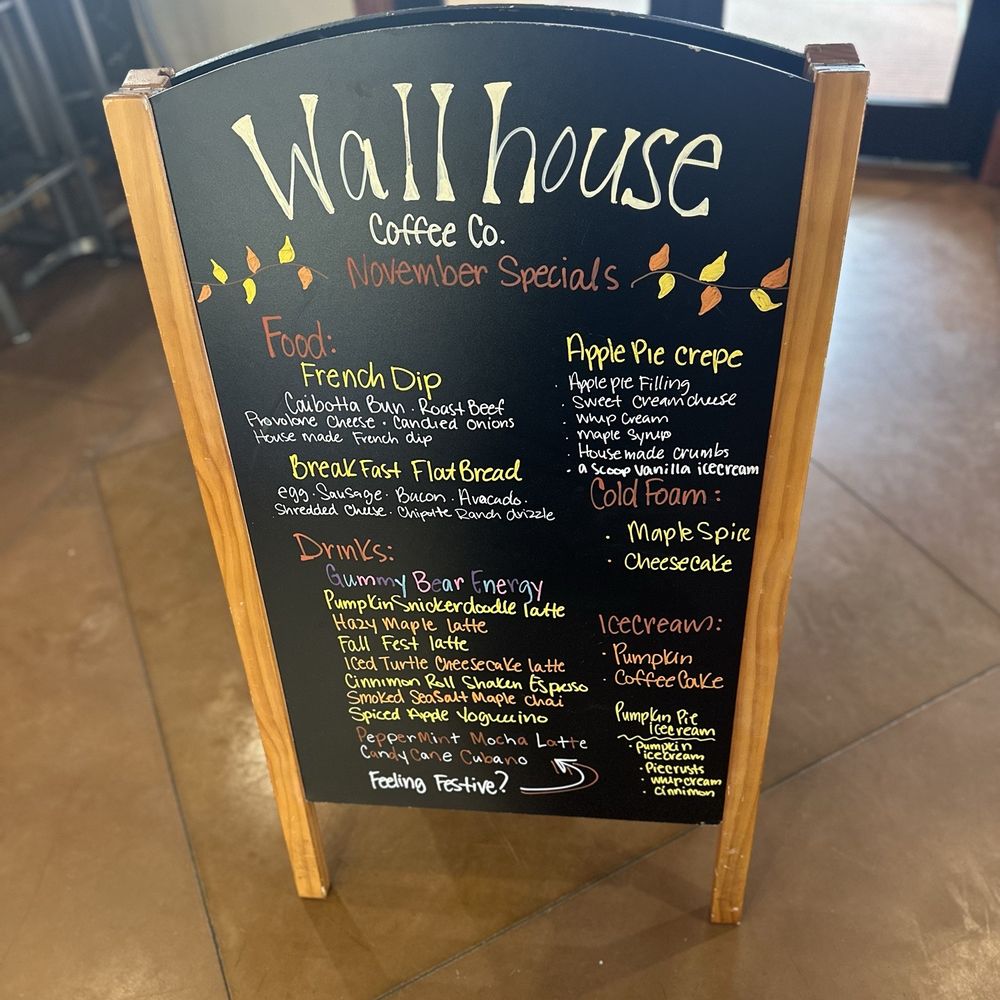 Wallhouse
Coffee Co.
November Specials
Food:
French Dip
Caibotta Bun · Roast Beef
Provolone Cheese · Candied onions
House made French dip
BreakFast FlatBread
egg · Sausage · Bacon · Avacado ·
Shredded Cheese · Chipotle Ranch drizzle
Drinks:
Gummy Bear Energy
Pumpkin Snickerdoodle latte
Hazy Maple latte
Fall Fest latte
Iced Turtle Cheesecake latte
Cinnimon Roll Shaken Espresso
Smoked SeaSalt Maple chai
Spiced Apple Yoguccino
PepperMint Mocha Latte
Candy Cane Cubano
Feeling Festive?
Apple Pie crepe
· Apple pie Filling
· Sweet creamcheese
· whip Cream
· maple Syrup
· House made crumbs
· a scoop vanilla icecream
Cold Foam:
· Maple Spice
· Cheesecake
Icecream:
· Pumpkin
· Coffee Cake
Pumpkin Pie
Icecream
· Pumpkin
icecream
· Piecrusts
· whip cream
· Cinnimon